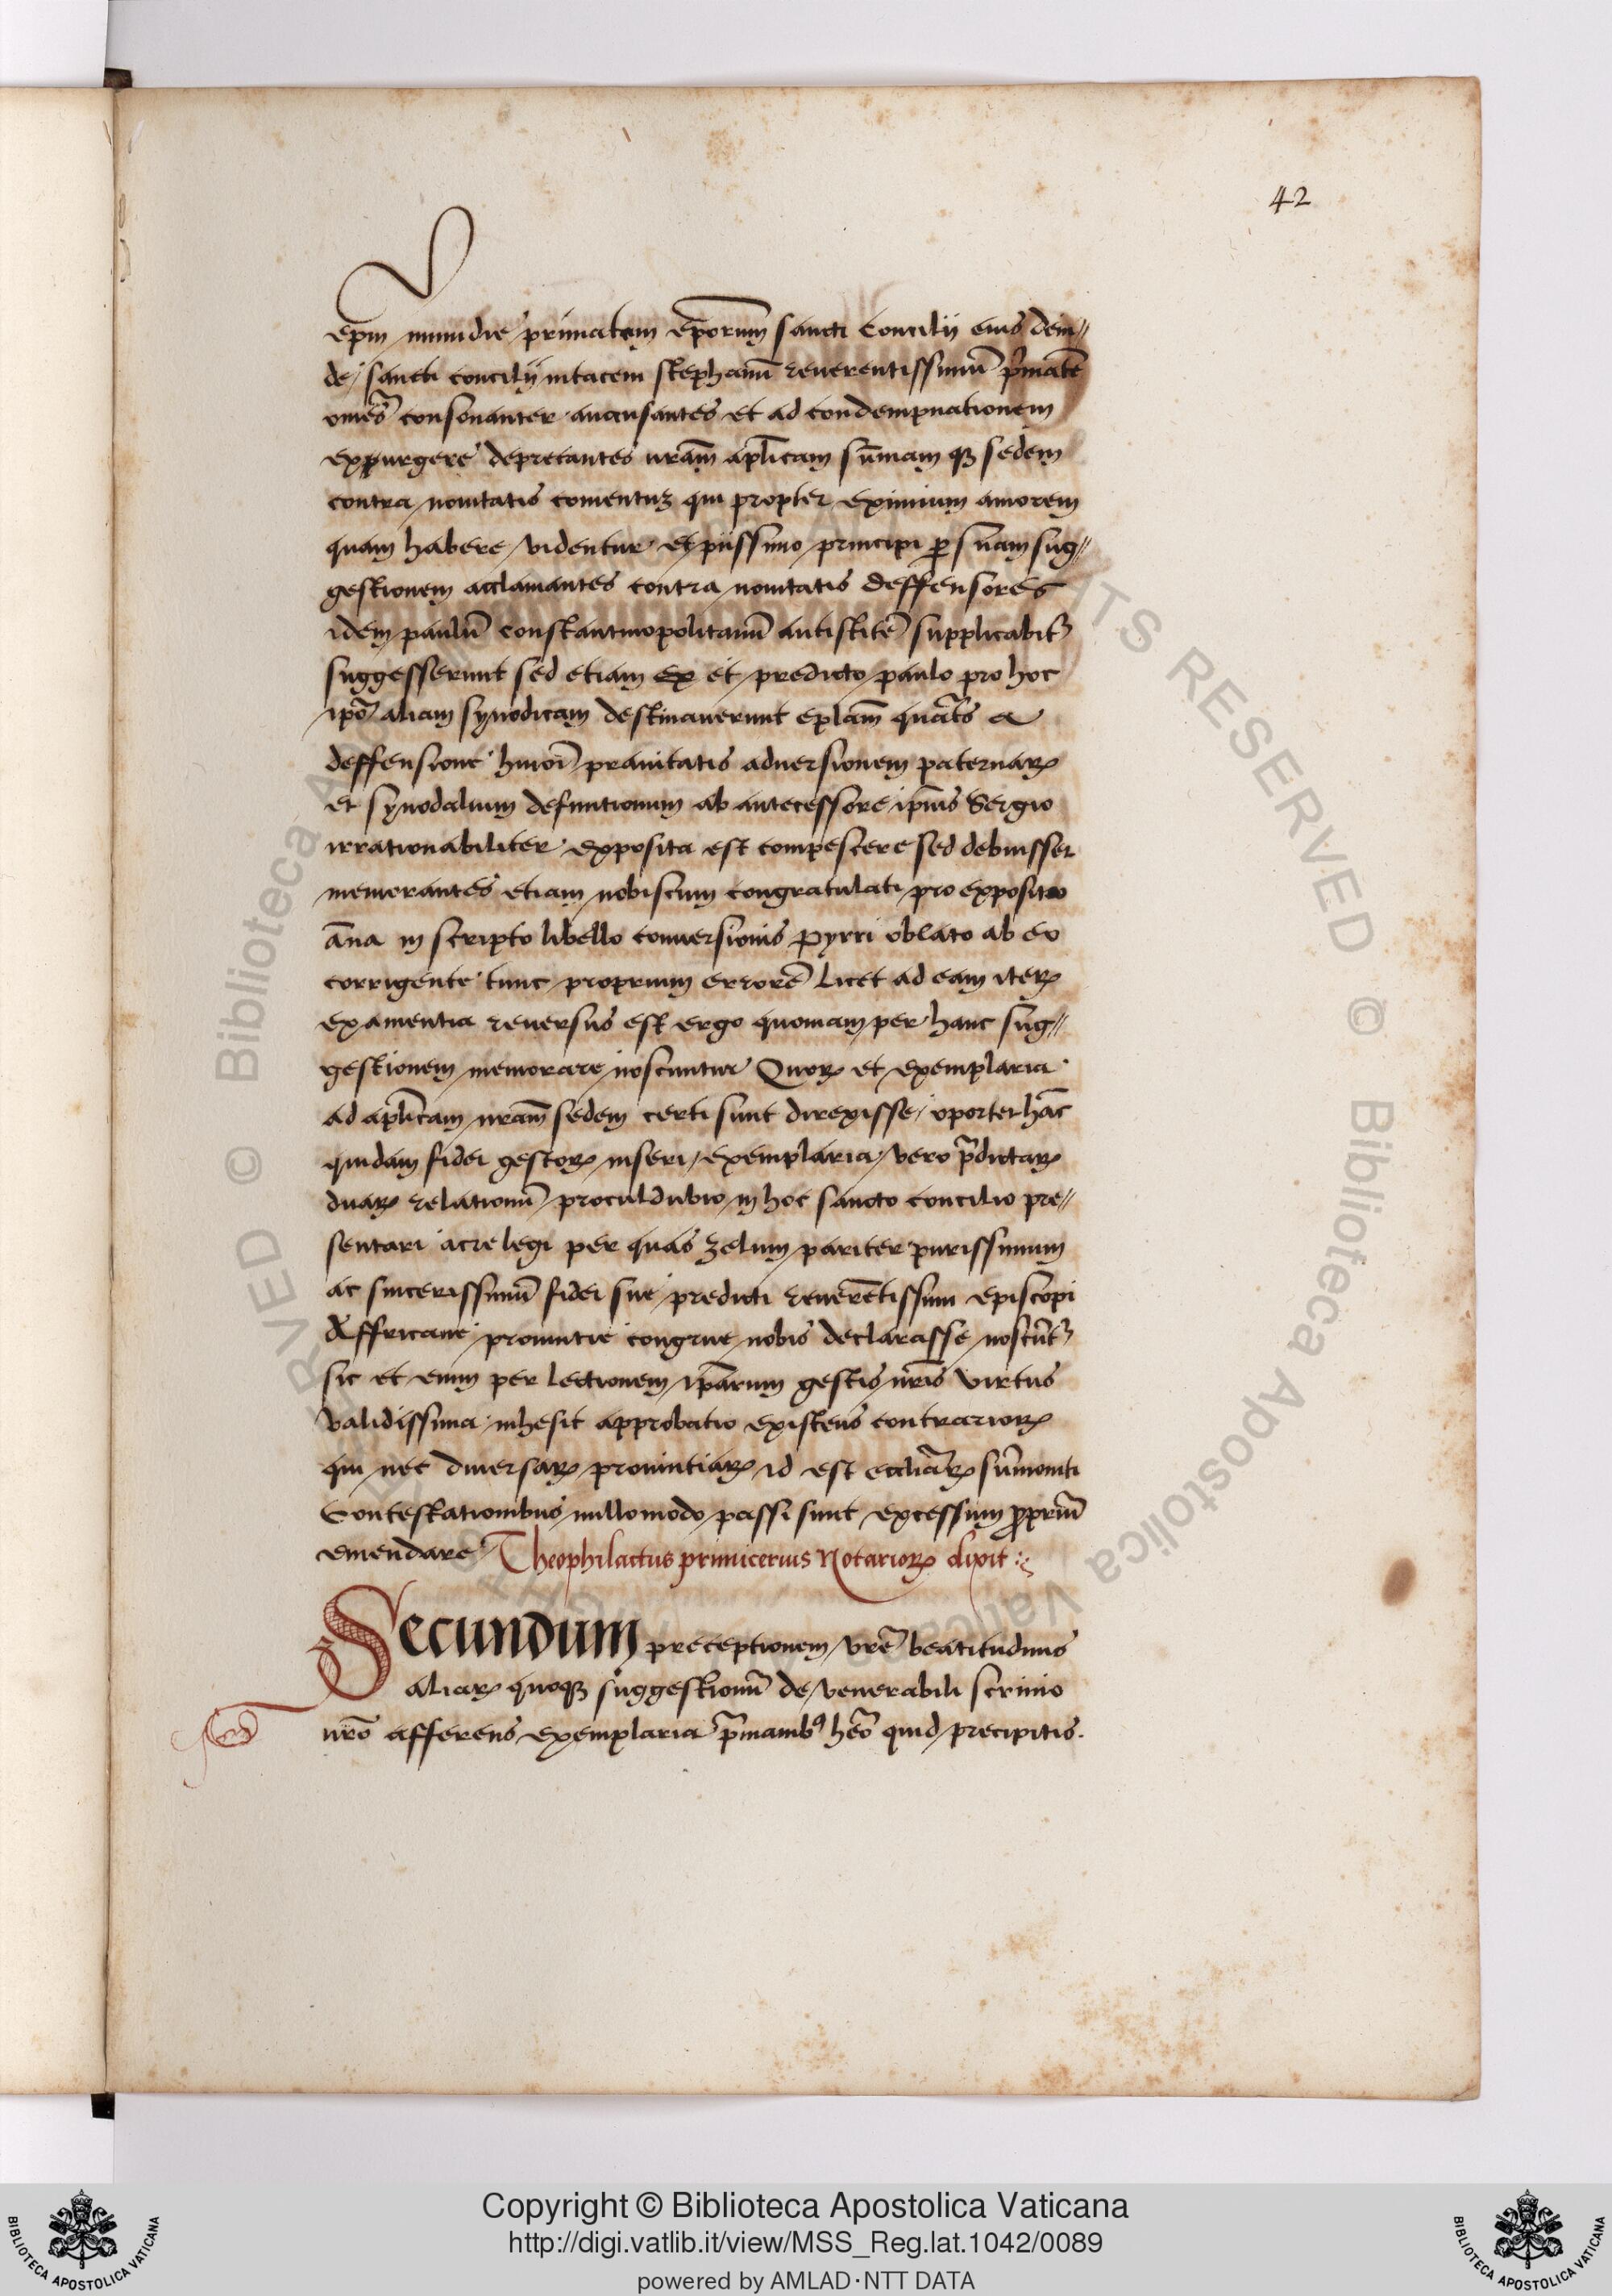 42
epm numidie primatem eporum sancti Concilij eius dem//
de sancti concilij intacem stephanū reuerentissimū pmatē
omēs consonanter accusantes et ad condempnationem
expurgere deprecantes nram aplicam sumam qz sedem
contra nouitatis comentuz qui propter eximium amorem
quam habere videntur et piissimo principi p suam sug//
gestionem acclamantes contra nouitatis deffensores
idem paulū constantinopolitanū antistitē supplicabitr
suggesserunt sed etiam ex et predicto paulo pro hoc
ipo aliam synodicam destinauerunt eplam quats a
deffensione hmoi prauitatis aduersionem paternarꝝ
et synodalium definitionum ab antecessore ipius Sergio
irrationabiliter exposita est compescere sed debuisset
memorantes etiam nobiscum congratulati pro exposito
āna in scripto libello conuersionis Pyrri oblato ab eo
corrigente tunc proprium errorē licet ad eam iterꝝ
examentia reuersus est ergo quoniam per hanc sug//
gestionem memorare noscuntur Quorꝝ et exemplaria
ad aplicam nram sedem certi sunt direxisse oportet hāc
quidam fidei gestorꝝ inseri exemplaria vero pdictarꝝ
duarꝝ relationū proculdubio in hoc sancto concilio pre//
sentari acre legi per quas zelum pariter purissimum
ac sincerissimū fidei sue predicti reuerētissim episcopi
Affricane prouintie congrue nobis declarasse noscūtr
sic et enim per lectionem iparum gestis nris virtus
validissima inhesit approbatio existens contrariorꝝ
qui nec diuersarꝝ prouintiarꝝ id est eccliarꝝ sumoniti
Contestationibus nullomodo passi sunt excessum ppriū
emendare Theophilactus primicerius Notariorꝝ dixit
Secundum preceptionem vrē beatitudinis
aliarꝝ quoqz suggestionū de venerabili scrinio
nrō afferens exemplaria pmanibꝰ heō quid precipitis.
© Biblioteca Apostolica Vaticana
Copyright © Biblioteca Apostolica Vaticana
http://digi.vatlib.it/view/MSS_Reg.lat.1042/0089
powered by AMLAD·NTT DATA
BIBLIOTECA APOSTOLICA VATICANA
BIBLIOTECA APOSTOLICA VATICANA